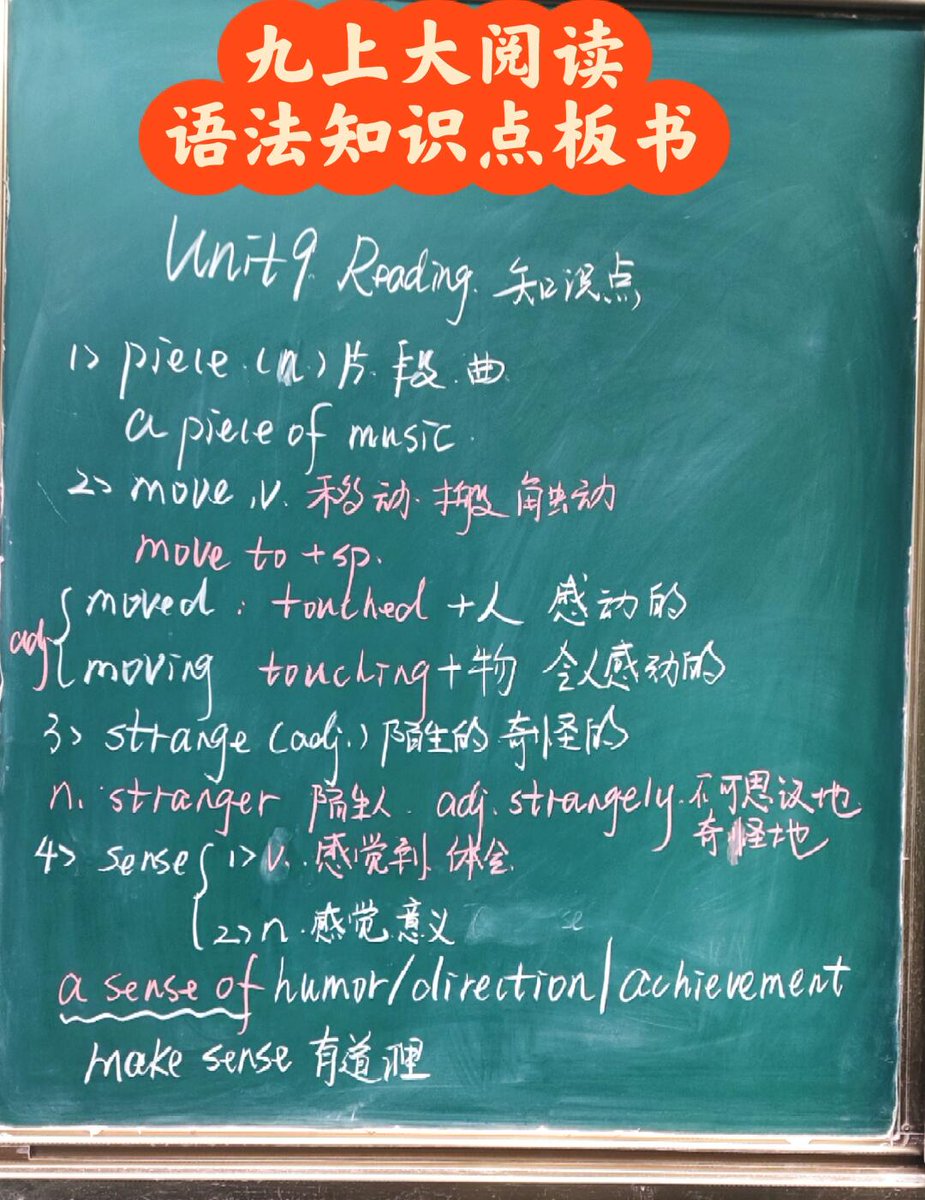 九上大阅读
语法知识点板书
Unit9 Reading 知识点
1> piece (n) 片. 段. 曲
a piece of music.
2> move .v. 移动. 搬 触动
move to + sp.
adj { moved : touched + 人 感动的
moving touching + 物 令人感动的
3> strange (adj.) 陌生的. 奇怪的
n. stranger 陌生人. adj. strangely. 不可思议地.
奇怪地
4> sense { 1> v. 感觉到. 体会
2> n. 感觉 意义
a sense of humor/direction/achievement
make sense 有道理